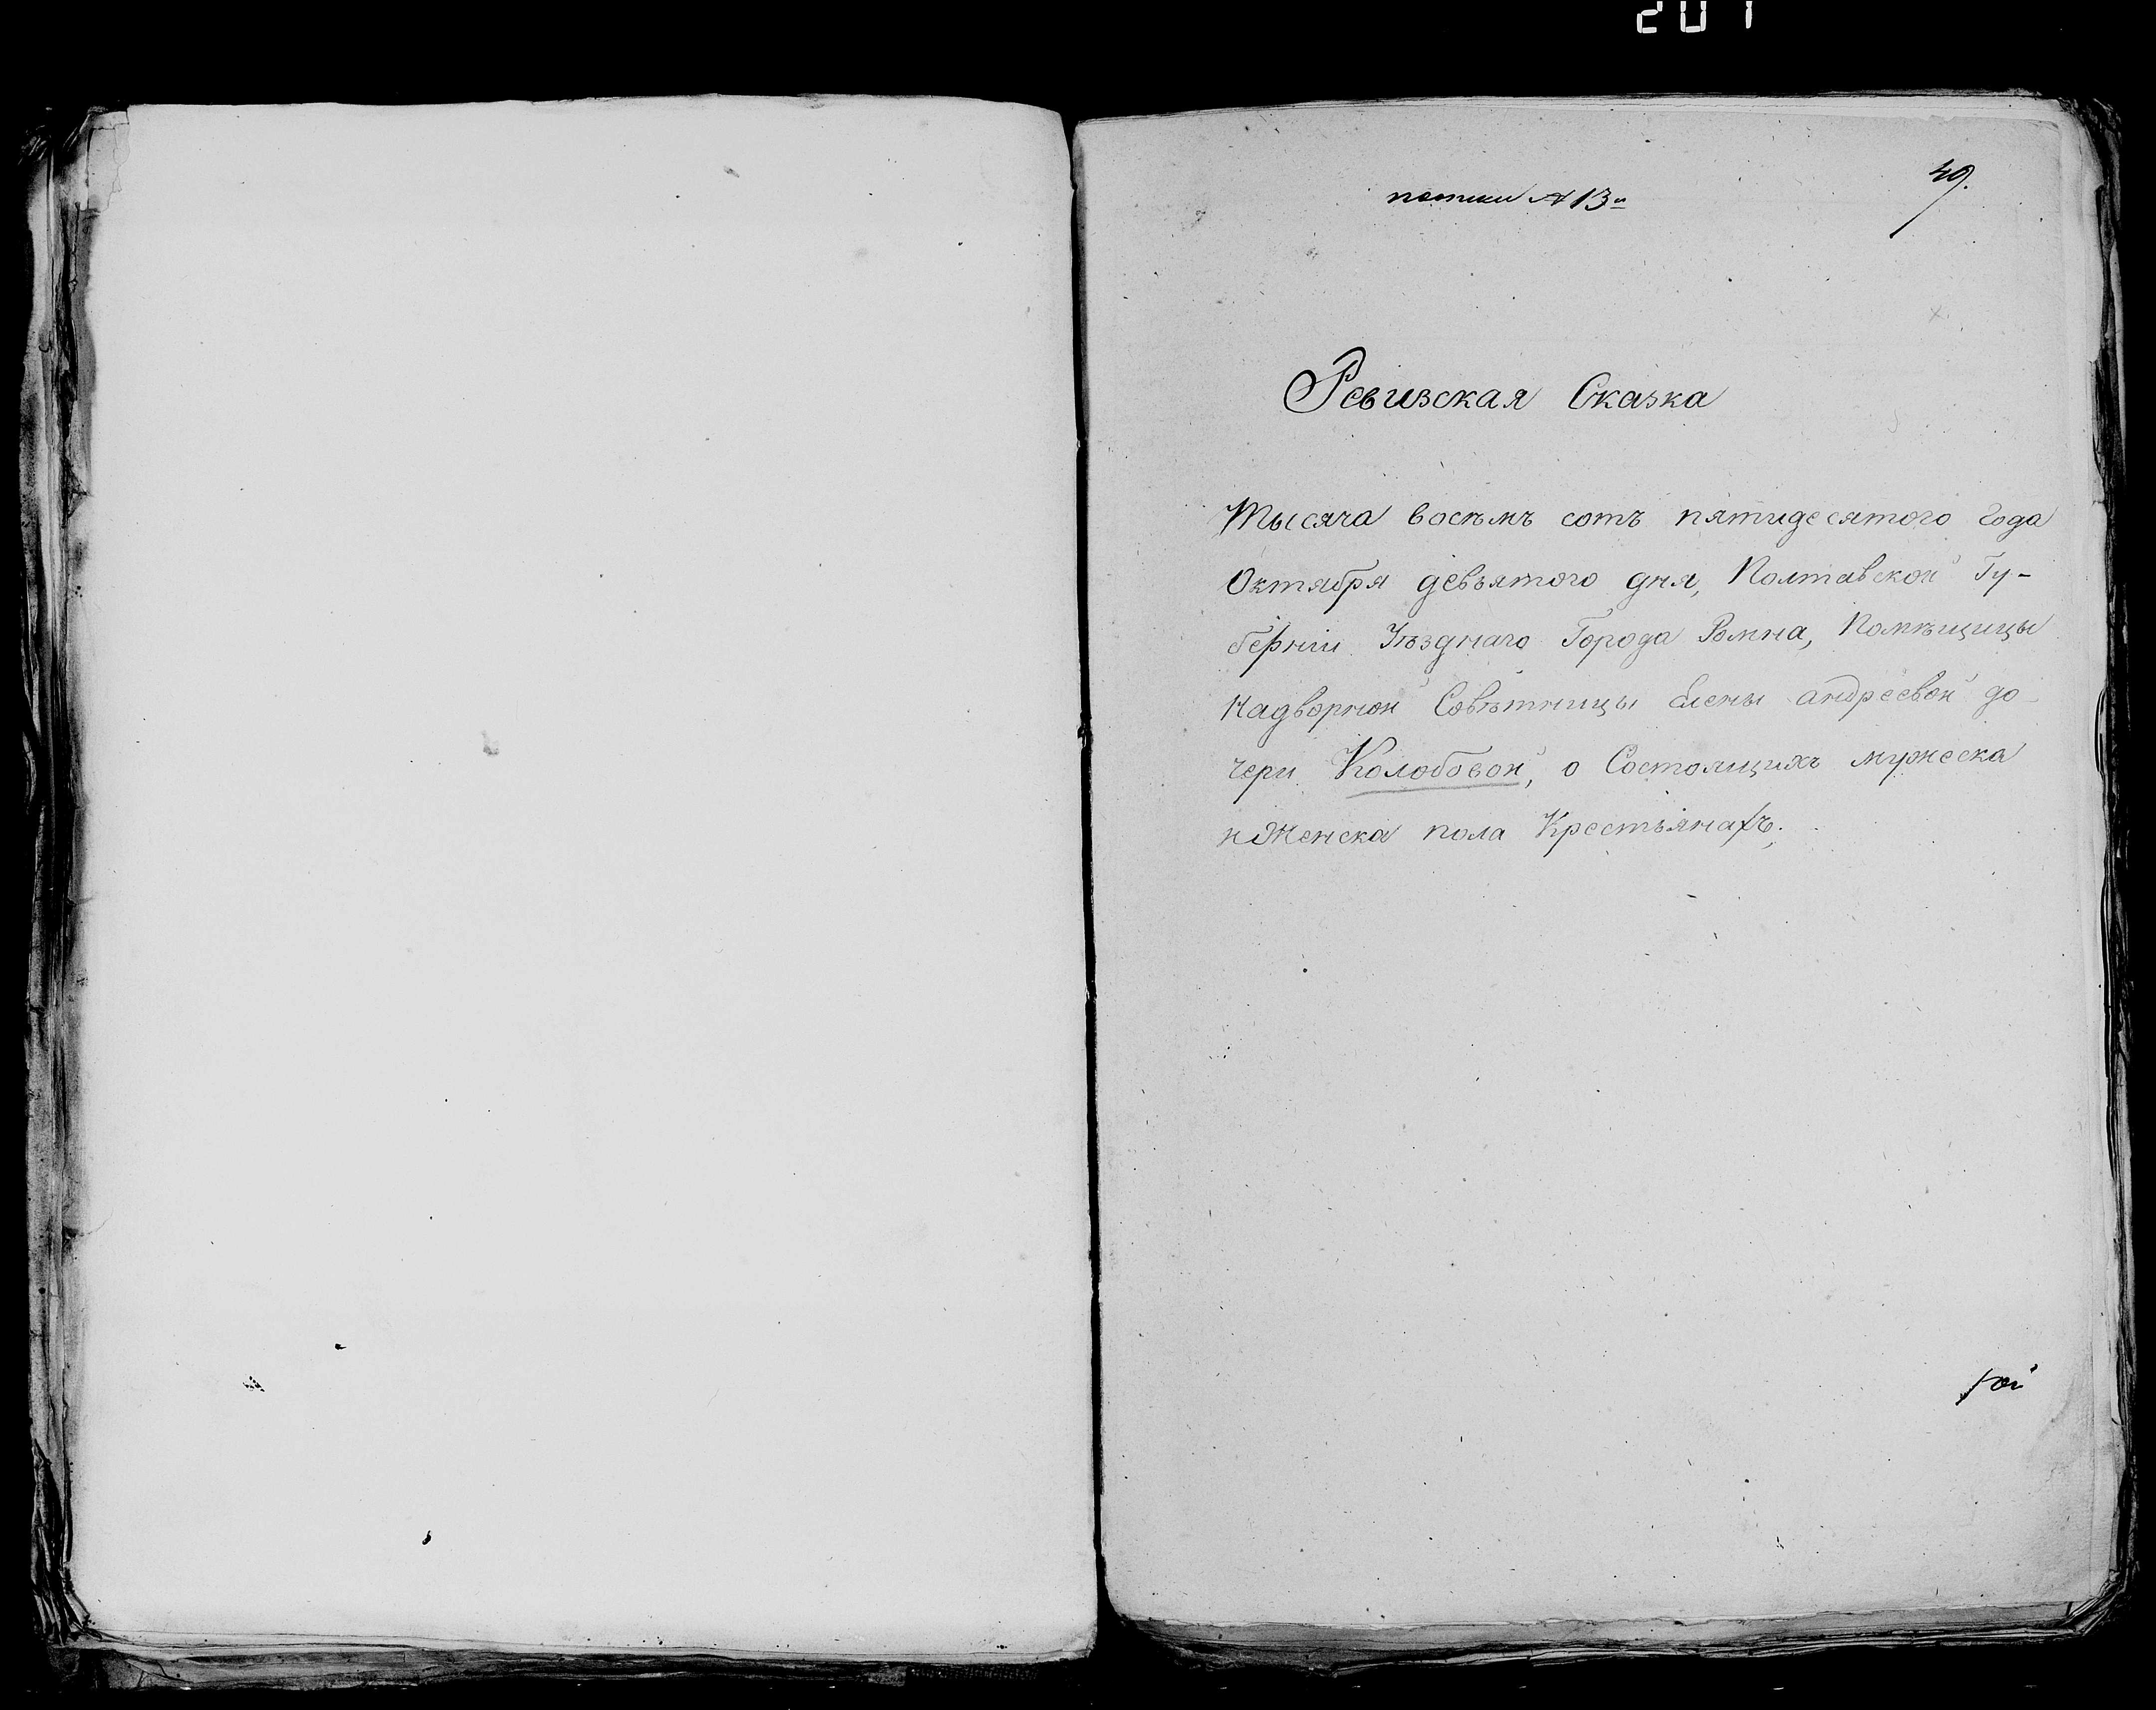 201
49.
№ 13й
Ревизская Сказка
Тысяча восѣмъ сотъ пятидесятого года
Октября девъятого дня, Полтавской Гу-
берніи Уѣзднаго Города Ромна, Помѣщицы
Надворной Совѣтницы Елены андреевой до-
чери Колобовой, о Состоящихъ мужеска
и Женска пола Крестьянахъ;